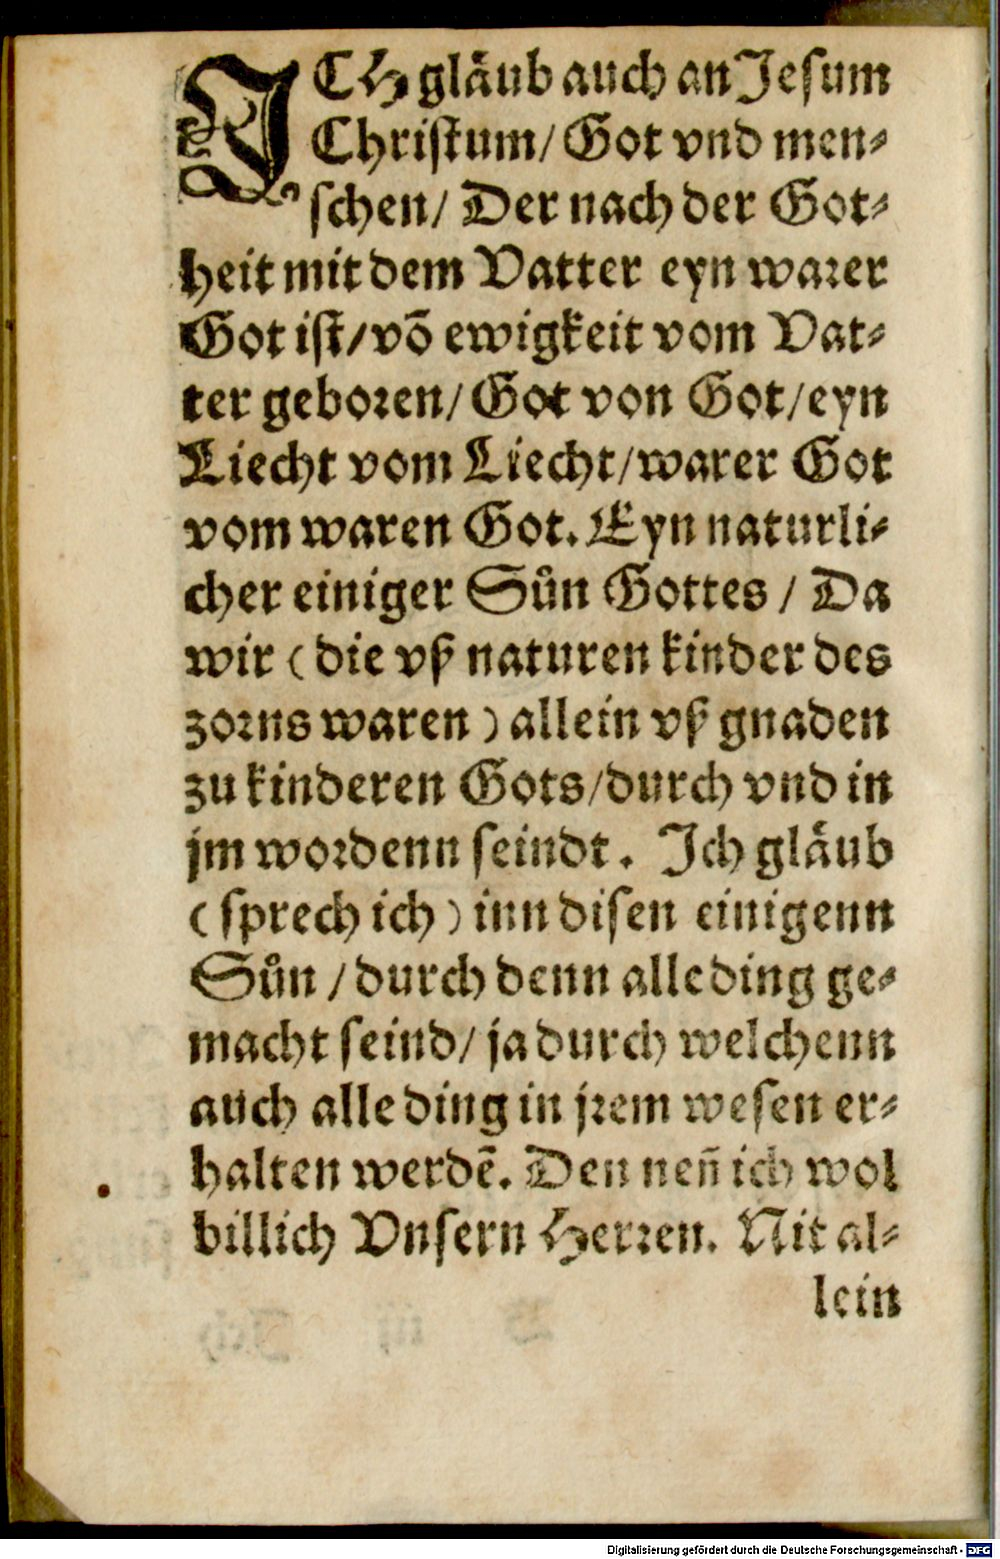 ICH glaͤub auch an Jeſum
Chriſtum/ Got vnd men⸗
ſchen/ Der nach der Got⸗
heit mit dem Vatter eyn warer
Got iſt/ võ ewigkeit vom Vat⸗
ter geboren/ Got von Got/ eyn
Liecht vom Liecht/ warer Got
vom waren Got. Eyn naturli⸗
cher einiger Suͦn Gottes / Da
wir (die vß naturen kinder des
zorns waren) allein vß gnaden
zu kinderen Gots/ durch vnd in
jm wordenn ſeindt. Ich glaͤub
(ſprech ich) inn diſen einigenn
Suͦn / durch denn alle ding ge⸗
macht ſeind/ ja durch welchenn
auch alle ding in jrem weſen er⸗
halten werdẽ. Den neñ ich wol
billich Vnſern Herren. Nit al⸗
lein
Digitalisierung gefördert durch die Deutsche Forschungsgemeinschaft - DFG